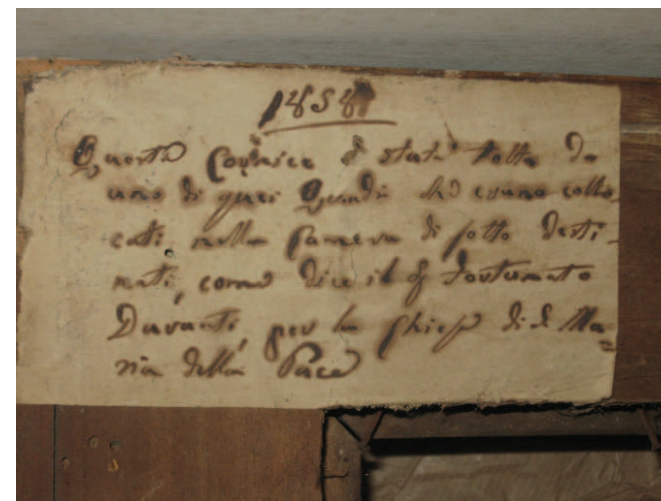 1858
Questa Cornice è stata tolta da
uno di quei Quadri che erano collo
cati nella Camera di sotto desti-
nati, come dice il Fortunato
Duranti, per la Chiesa di S. Ma=
ria della Pace